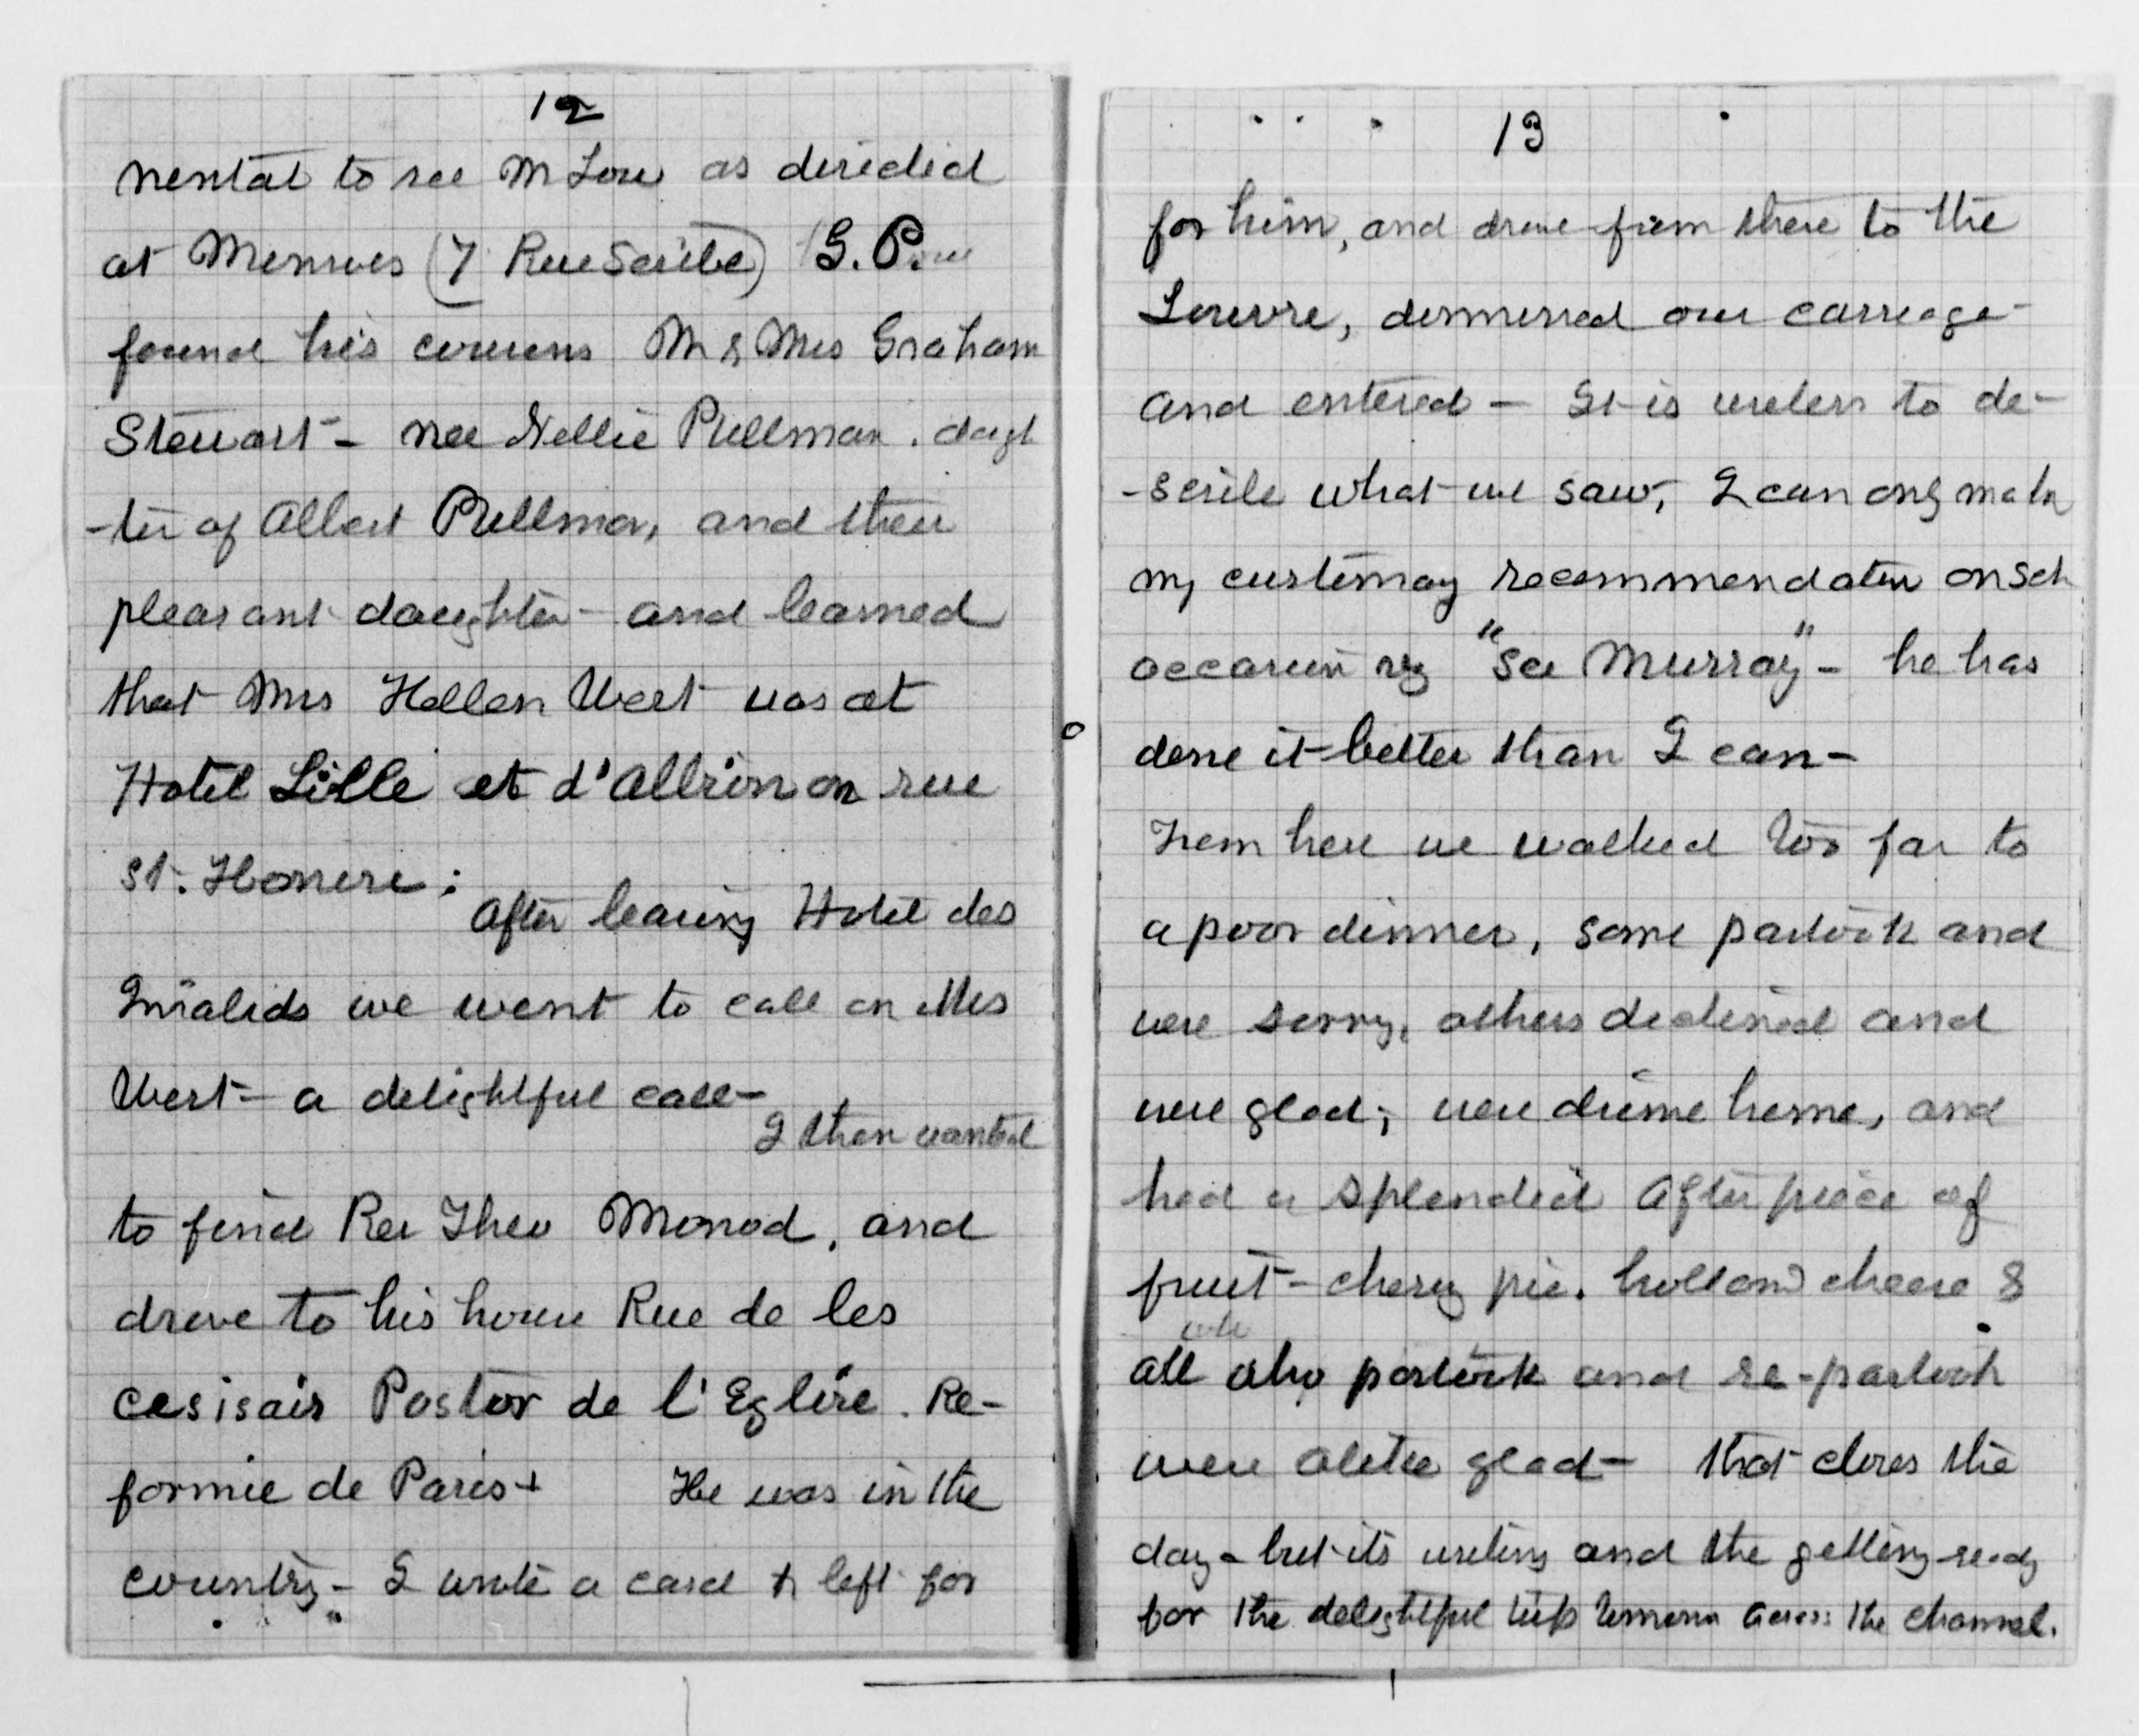 12
nental to see M Low as directed
at Munroes (7 Rue Scribe) G. P
found his cousins M & Mrs Graham
Stewart - nee Nellie Pullman . daugh
-ter of Albert Pullman, and their
pleasant daughter - and learned
that Mrs Hellen West was at
Hotel Lille et d'Albion on rue
St. Honere :
After leaving Hotel des
Invalids we went to call on Mrs
West - a delightful call -
I then wanted
to find Rev Theo Monod, and
drove to his house Rue de les
Pastor de l'Eglise . Re-
formie de Paris + He was in the
country - I wrote a card & left for
13
for him, and drove from there to the
Louvre, dismissed our carriage -
and entered - It is useless to de-
-scribe what we saw, I can only make
my customary recommendation on sch
occasion "See Murray" - he has
done it better than I can -
From here we walked too far to
a poor dinner, some partook and
were sorry, others declined and
were glad; were drivne home, and
had a splendid After piece of
fruit - chery pie. holland cheese &
all who partook and re-partook
were also glad - that closes the
day - but its writing and the getting ready
for the delightful trip tomorrow across the channel.